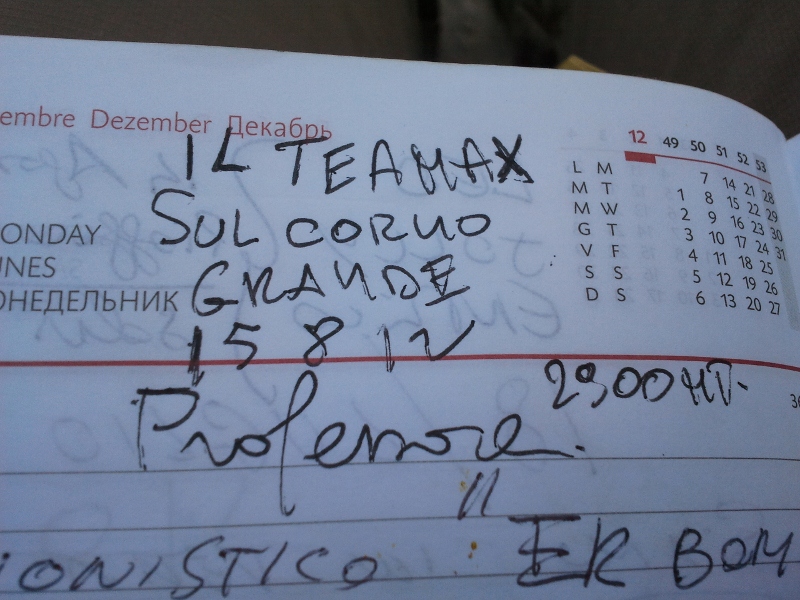 embre Dezember Декабрь
IL TEAMAX
SUL CORNO
GRANDE
15 8 12
ONDAY
UNES
ОНЕДЕЛЬНИК
12 49 50 51 52 53
L M 7 14 21 28
M T 1 8 15 22 29
M W 2 9 16 23 30
G T 3 10 17 24 31
V F 4 11 18 25
S S 5 12 19 26
D S 6 13 20 27
2900 MT.
Professore.
"
IONISTICO ER BOM